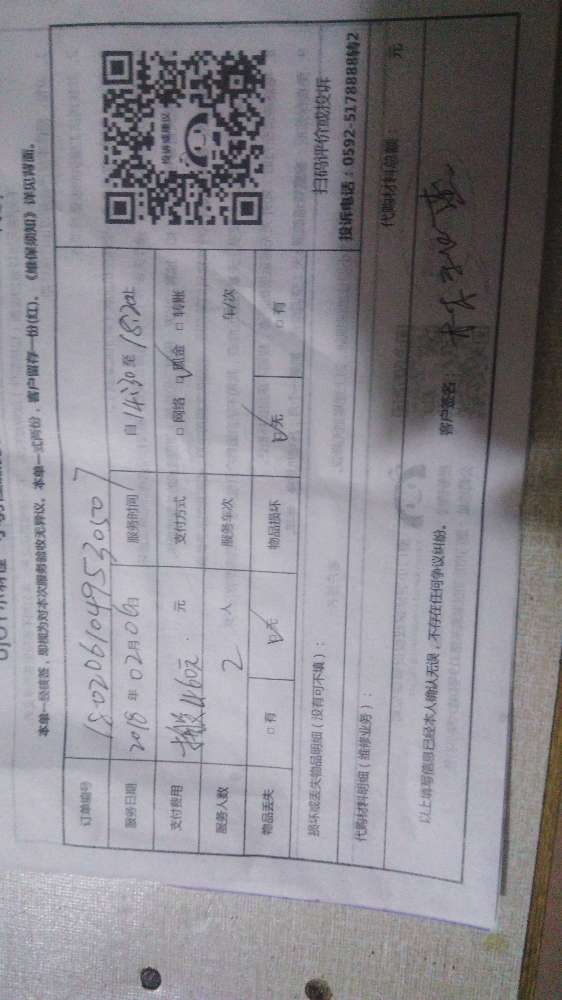 本单一经核签，即视为对本次服务验收无异议。本单一式两份，客户留存一份(红)。《维保须知》详见背面。
订单编号 180206104953050 7
服务日期 2018 年 02 月 06 日 服务时间 自 14:30 至 18:20止
支付费用 460元 元 支付方式 □ 网络 □ 现金 □ 转账
服务人数 2 人 服务车次 车/次
物品丢失 □ 有 □ 无 物品损坏 □ 无 □ 有
投诉或建议
扫码评价或投诉
投诉电话：0592-5178888转2
损坏或丢失物品明细（没有可不填）：
代购材料明细（维修业务）： 代购材料总额： 元
以上填写信息已经本人确认无误，不存在任何争议纠纷。 客户签名：